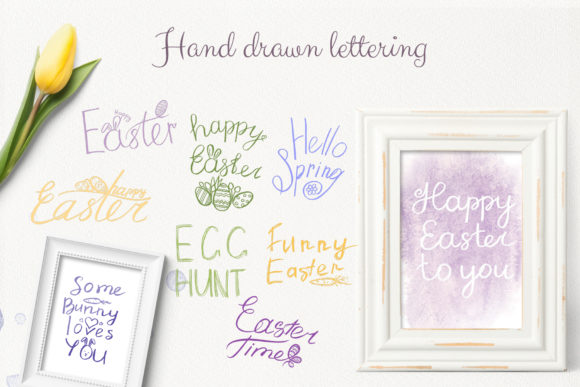 Hand drawn lettering
Easter
happy
Easter
Hello
Spring
happy
Easter
EGG
HUNT
Funny
Easter
Easter
Time
Some
Bunny
loves
YOU
Happy
Easter
to you